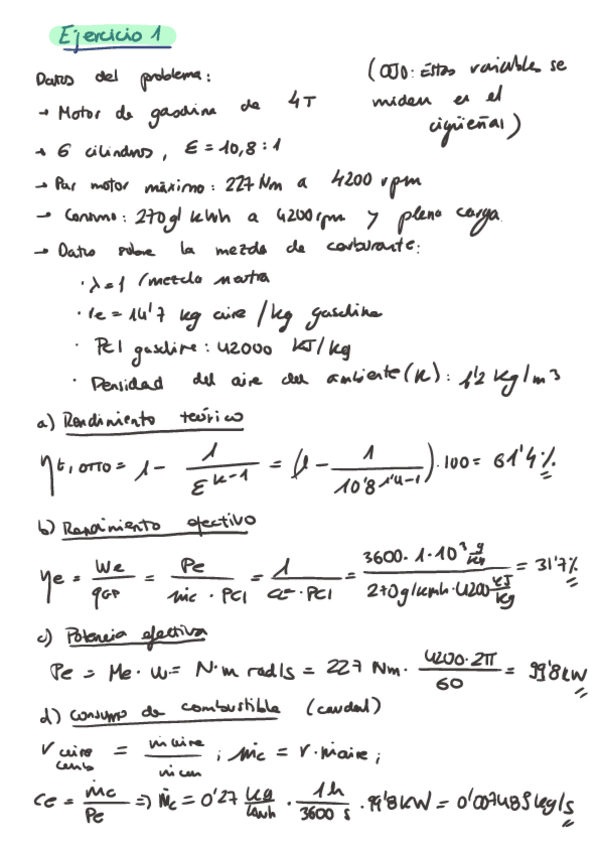 Ejercicio 1
Datos del problema: (OJO: Éstas variables se
→ Motor de gasolina de 4T miden en el
cigüeñal)
→ 6 cilindros, ε = 10,8:1
→ Par motor máximo: 227 Nm a 4200 rpm
→ Consumo: 270 g/kWh a 4200 rpm y plena carga
→ Datos sobre la mezcla de carburante:
· λ=1 /mezcla neutra
· re = 14'7 kg aire / kg gasolina
· PCI gasolina: 42000 KJ/kg
· Densidad del aire del ambiente (K): 1'2 kg/m³
a) Rendimiento teórico
ηt,OTTO = 1 - 1/ε^(K-1) = (1 - 1/10'8^(1'4-1)) · 100 = 61'4%
b) Rendimiento efectivo
ηe = We/qap = Pe/ṁc · PCI = 1/Ce · PCI = 3600 · 1 · 10³ g/kg / 270 g/kWh · 4200 KJ/kg = 31'7%
c) Potencia efectiva
Pe = Me · ω = N·m rad/s = 227 Nm · 4200·2π/60 = 99'8 kW
d) Consumo de combustible (caudal)
r aire/comb = ṁ aire/ṁ com ; ṁc = r · ṁaire ;
Ce = ṁc/Pe => ṁc = 0'27 kg/kWh · 1h/3600 s · 99'8 kW = 0'007485 kg/s